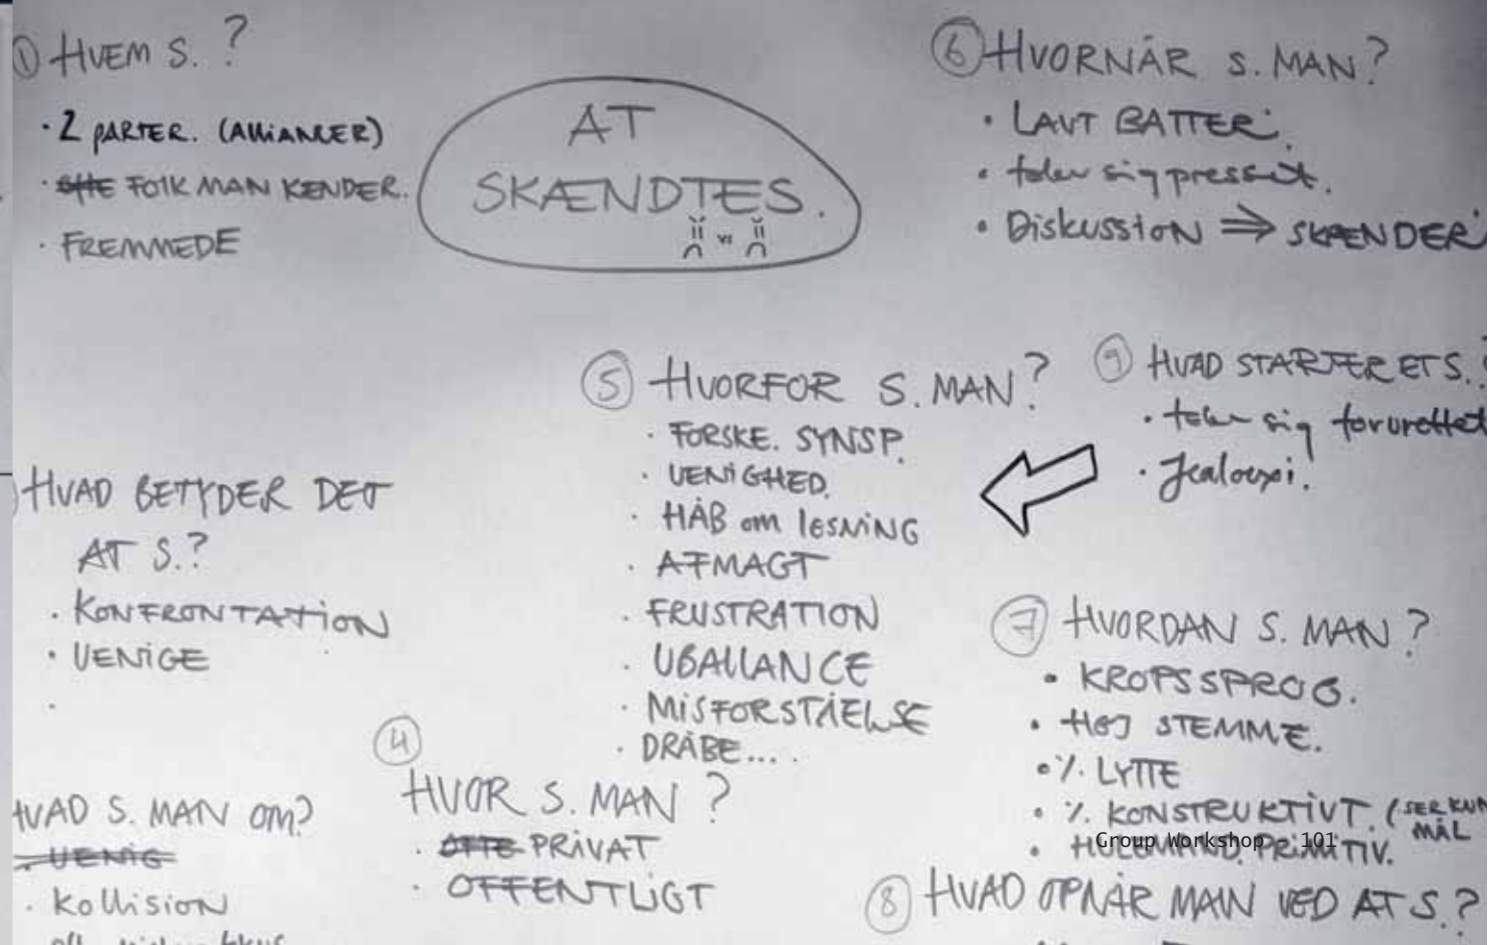 ① HVEM S. ?
· 2 PARTER. (ALLIANCER)
· OFTE FOLK MAN KENDER.
· FREMMEDE
AT
SKÆNDTES.
vs
⑥ HVORNÅR S. MAN?
· LAVT BATTERi.
· føler sig presset.
· Diskussion ⇒ SKÆNDERi
⑤ HVORFOR S. MAN?
· FORSKE. SYNSP.
· UENiGHED.
· HÅB om løsNiNG
· AFMAGT
· FRUSTRATION
· UBALLANCE
· MiSFORSTÅELSE
· DRÅBE....
⑨ HVAD STARTER ET S.?
· føler sig forurettet
· Jealouxi.
HVAD BETYDER DET
AT S.?
· KONFRONTATiON
· UENiGE
·
④
HVOR S. MAN ?
· OFTE PRiVAT
· OFFENTLiGT
⑦ HVORDAN S. MAN ?
· KROPSSPROG.
· HØJ STEMME.
· ٪ LYTTE
· ٪ KONSTRUKTiVT. (SER KUN
MÅL
· HULEMAND. PRiMiTiV.
Group Workshop 101
HVAD S. MAN OM?
· UENiG
· KolliSioN
⑧ HVAD OPNÅR MAN VED AT S.?